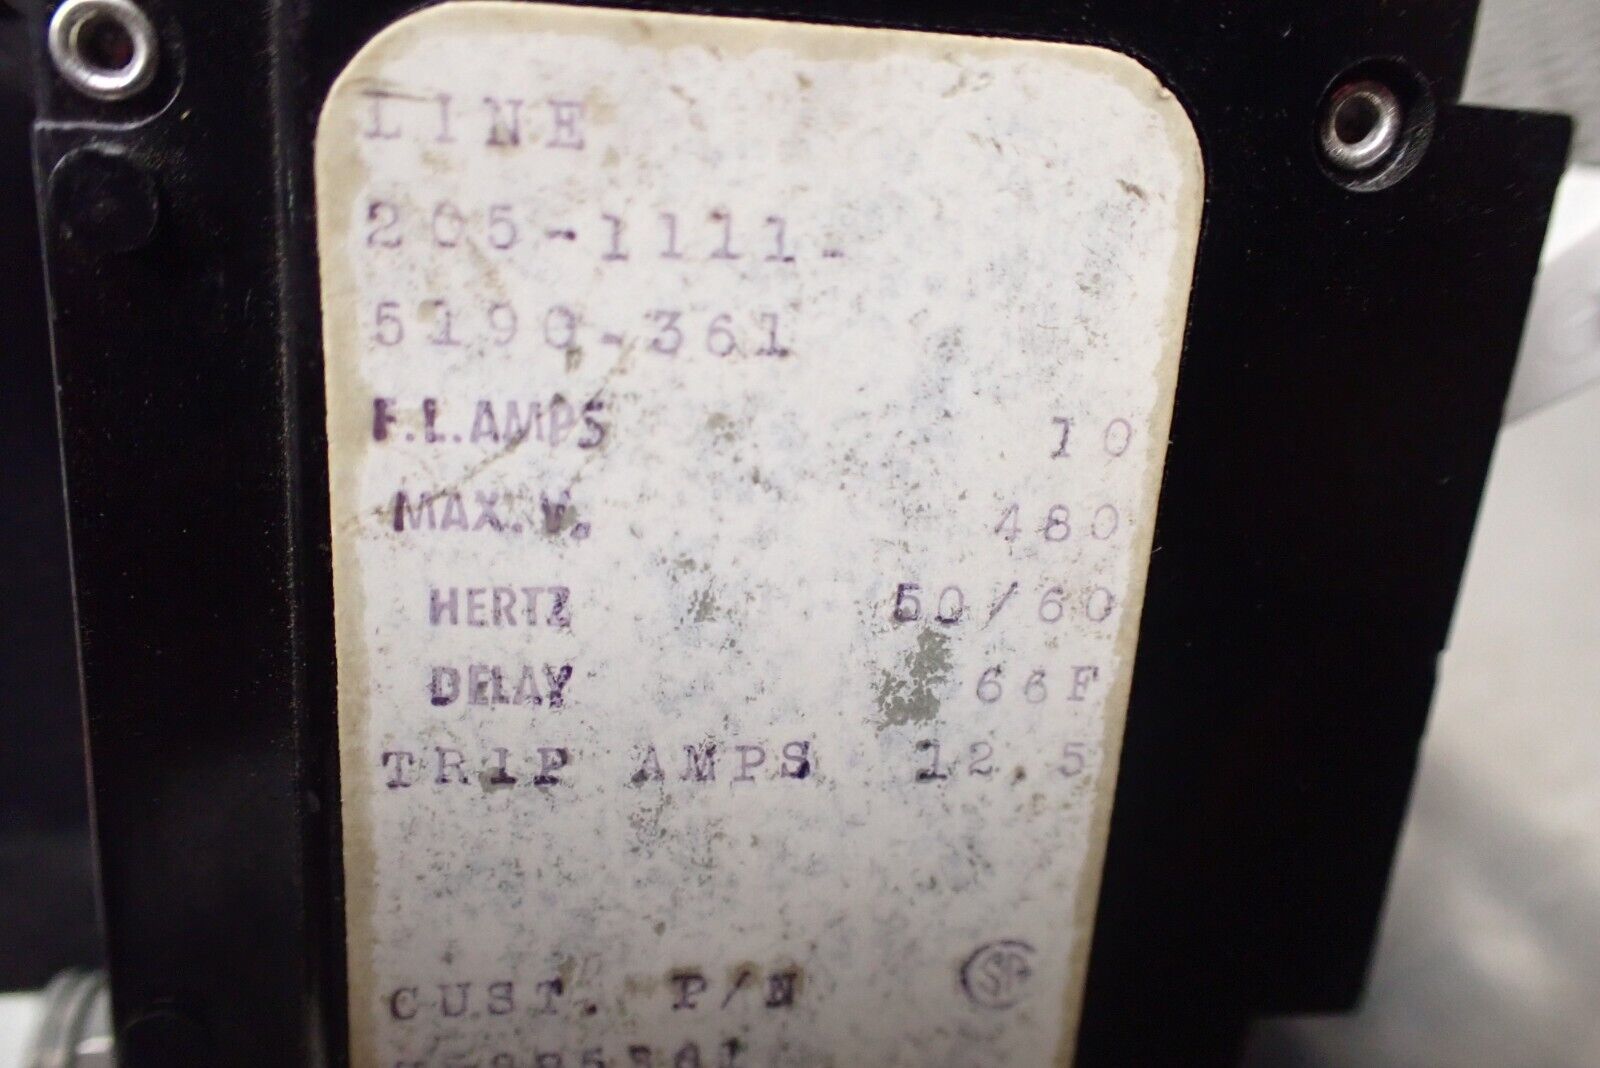 LINE
205-1111-
5190-361
F.L.AMPS 10
MAX.V. 480
HERTZ 50/60
DELAY 66F
TRIP AMPS 12.5
CUST. P/N